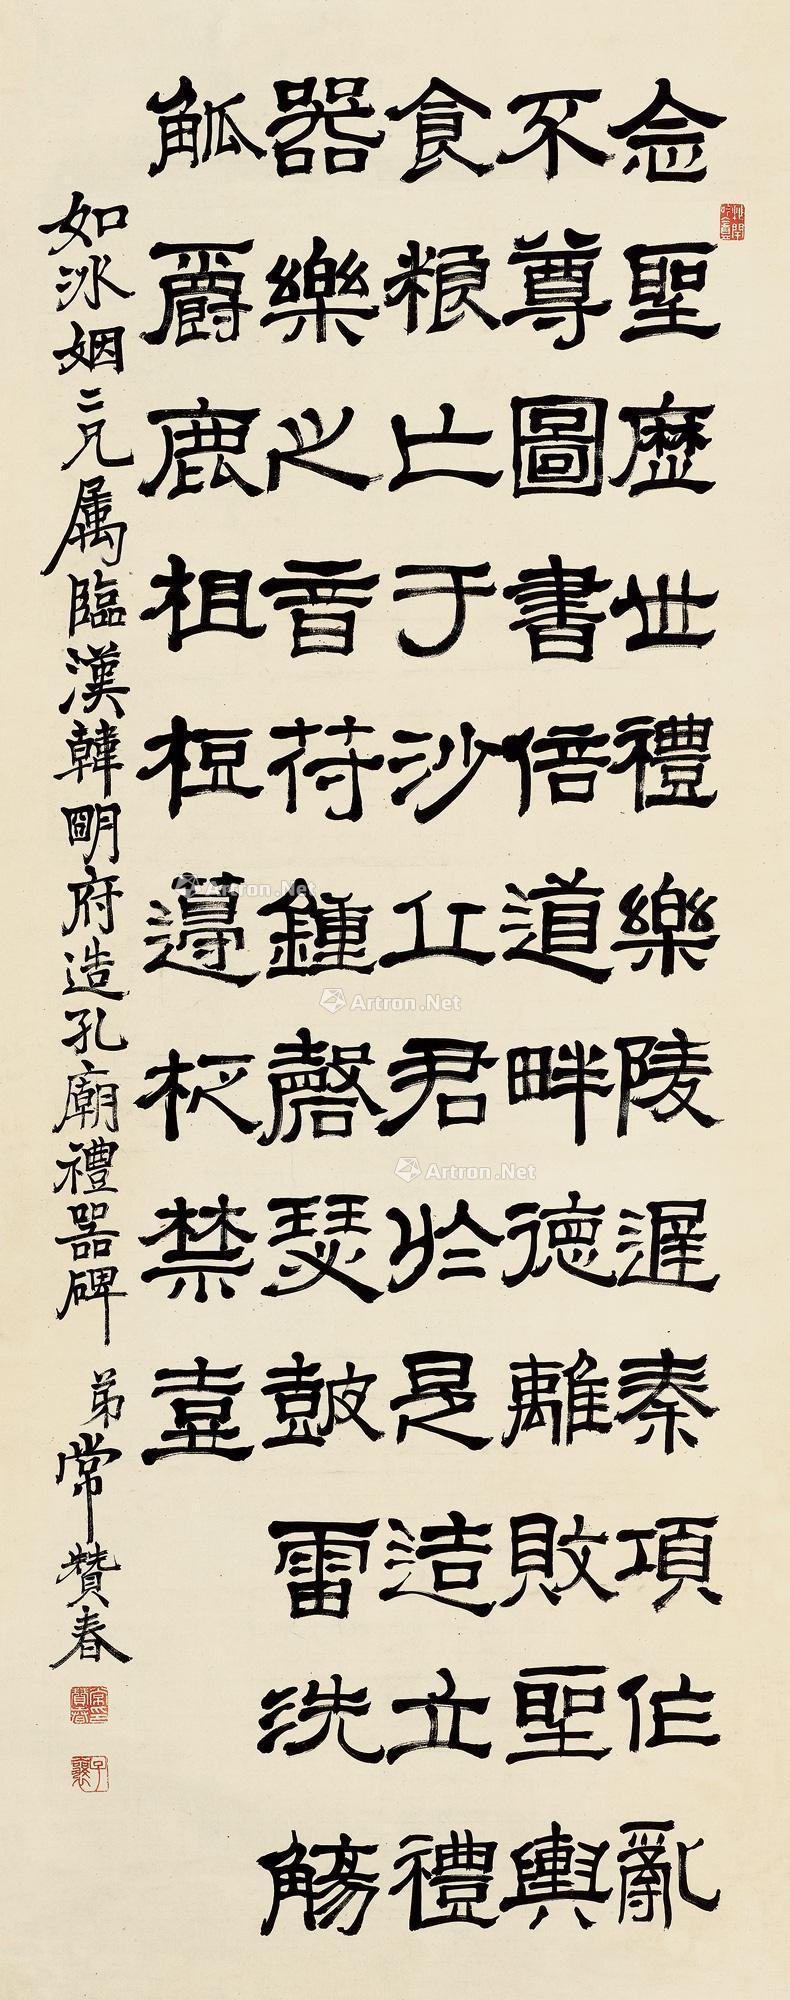 念聖歷世禮樂陵遲秦項作亂
不尊圖書倍道畔德離敗聖輿
食粮亡于沙丘君於是造立禮
器樂之音符鍾磬瑟鼓雷洗觴
觚爵鹿柤梪籩柉禁壺
如冰姻二兄属臨漢韓明府造孔廟禮器碑 弟常贊春
常贊春印
子襄
Artron.Net
Artron.Net
Artron.Net